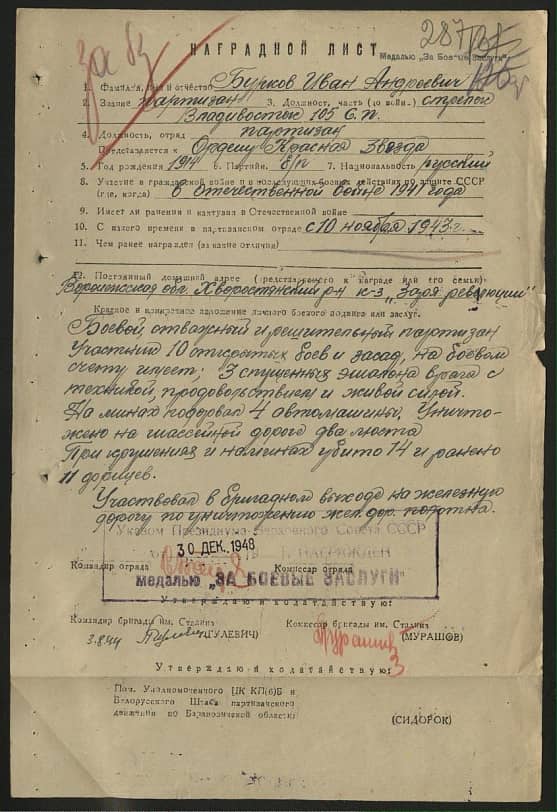 за бз
287
НАГРАДНОЙ ЛИСТ
Медалью „За Боевые Заслуги"
1. Фамилия, имя и отчество Бурков Иван Андреевич
2. Звание партизан 3. Должност, часть (до войн.) стрелок
Владивосток 105 С.п.
4. Должность, отряд партизан
Представляется к Ордену Красная Звезда
5. Год рождения 1914 6. Партийн. б/п 7. Национальность русский
8. Участие в гражданской войне и последующих боевых действиях по защите СССР
(где, когда) в Отечественной войне 1941 года
9. Имеет ли ранения и контузия в Отечественной войне
10. С какого времени в партизанском отряде с 10 ноября 1943 г.
11. Чем ранее награжден (за какие отличия)
12. Постоянный домашний адрес (представляемого к награде или его семьи)
Воронежская обл. Хворостянский р-н к-з „Заря революции"
Краткое и конкретное изложение личного боевого подвига или заслуг.
Боевой, отважный и решительный партизан
Участник 10 открытых боев и засад, на боевом
счету имеет; 3 спущенных эшалона врага с
техникой, продовольствием и живой силой.
На минах подорвал 4 автомашины, Уничто-
жено на шассейной дороге два моста
При крушениях и на минах убито 14 и ранено
11 фрицев.
Участвовал в бригадном выходе на железную
дорогу по уничтожению жел. дор. полотна.
Указом Президиума Верховного Совета СССР
от 30 ДЕК. 1948 г. НАГРАЖДЕН
Командир отряда Комиссар отряда
медалью „ЗА БОЕВЫЕ ЗАСЛУГИ"
Утверждаю и ходатайствую:
Командир бригады им. Сталина Комиссар бригады им. Сталина
3.8.44 (ГУЛЕВИЧ) (МУРАШОВ)
3
Утверждаю и ходатайствую:
Пом. Уполномоченого ЦК КП(б)Б и
Белорусского Штаба партизанского
движения по Барановичской области:
(СИДОРОК)